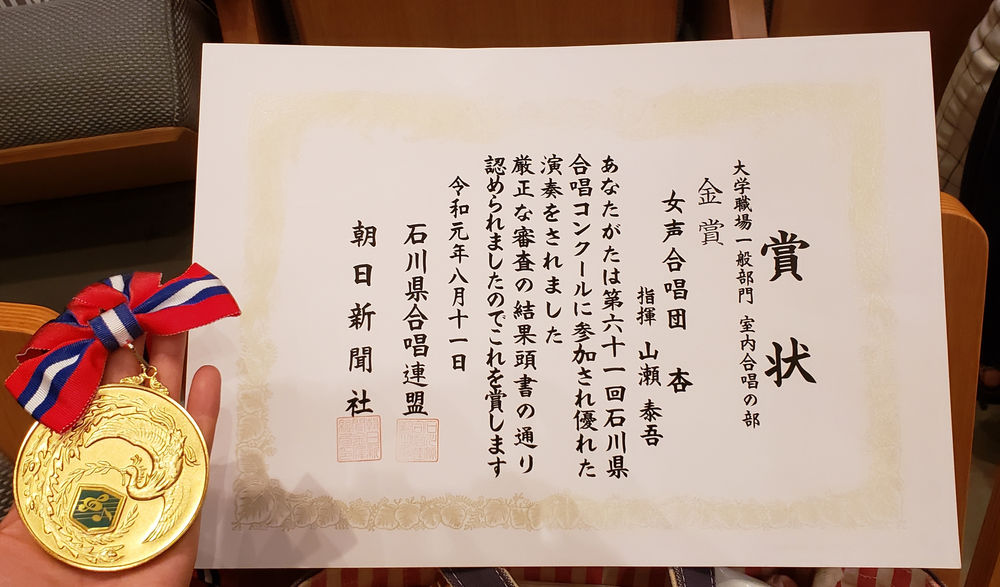 賞状
大学職場一般部門 室内合唱の部
金賞
女声合唱団 杏
指揮 山瀬 泰吾
あなたがたは第六十一回石川県
合唱コンクールに参加され優れた
演奏をされました
厳正な審査の結果頭書の通り
認められましたのでこれを賞します
令和元年八月十一日
石川県合唱連盟
朝日新聞社